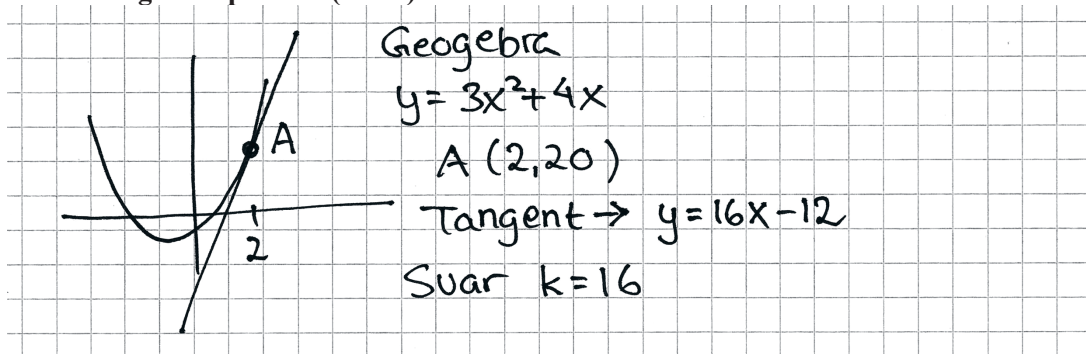 Geogebra
y = 3x²+ 4x
A
A (2,20)
Tangent → y = 16x - 12
2
Svar k = 16